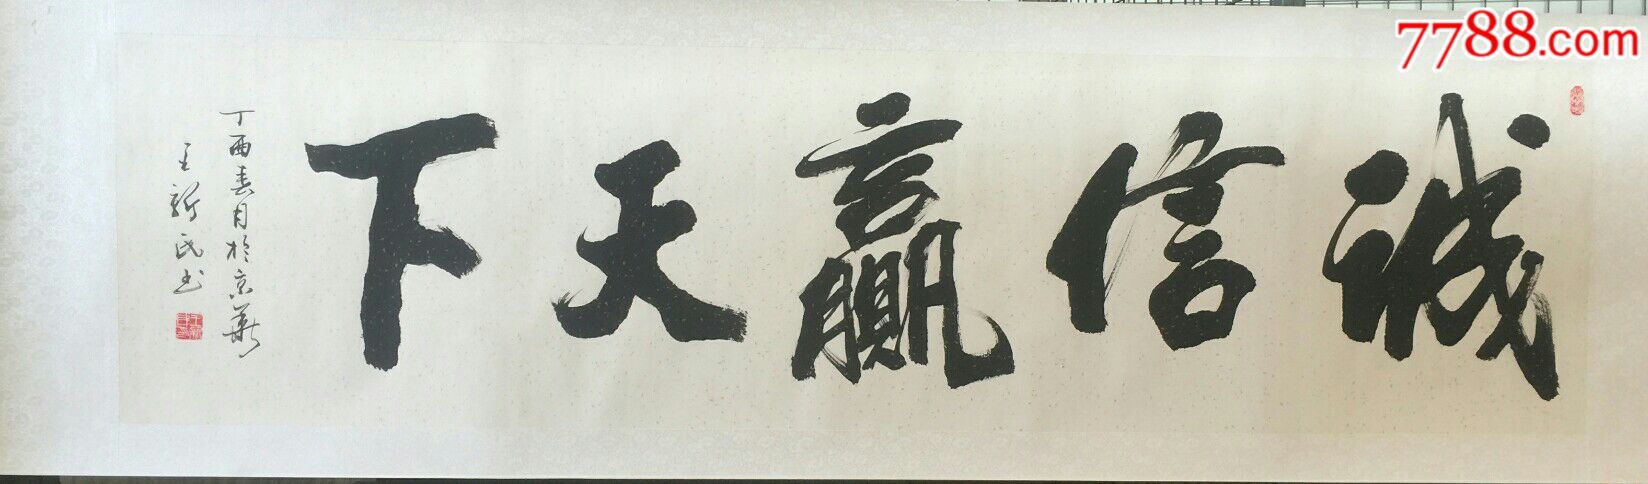 诚信赢天下
丁酉春月於京华
王新民书
7788.com